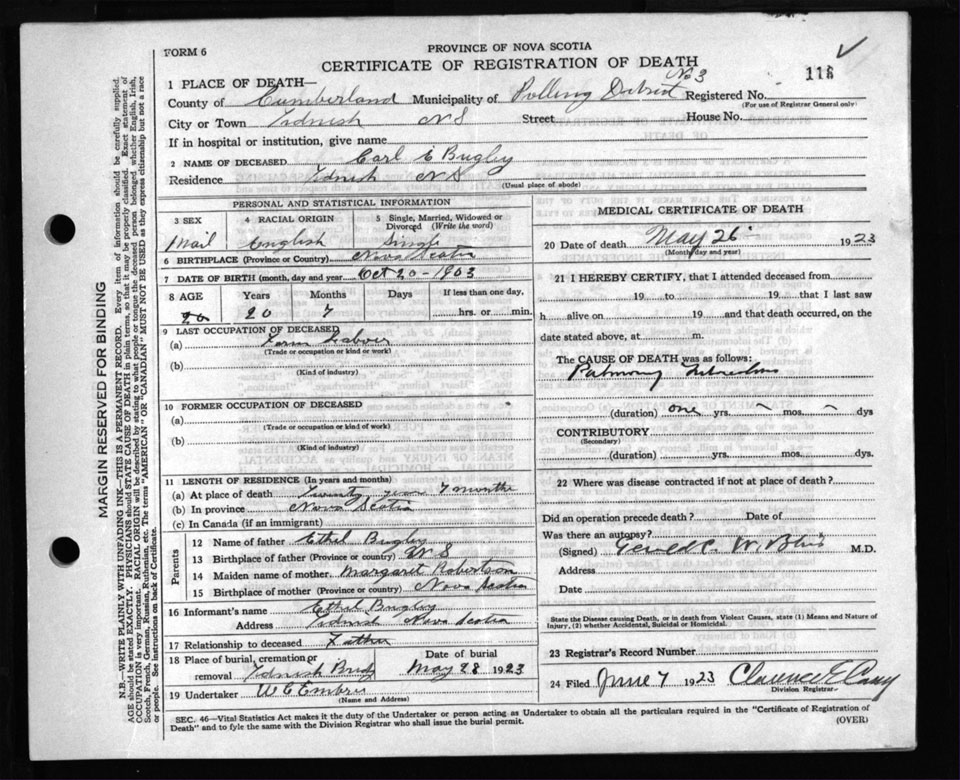 FORM 6
PROVINCE OF NOVA SCOTIA
CERTIFICATE OF REGISTRATION OF DEATH
116
1 PLACE OF DEATH—
County of Cumberland Municipality of Polling District No 3 Registered No.
(For use of Registrar General only)
City or Town Tidnish N S Street House No.
If in hospital or institution, give name
2 NAME OF DECEASED Carl E Bugley
Residence Tidnish N S
(Usual place of abode)
PERSONAL AND STATISTICAL INFORMATION
3 SEX 4 RACIAL ORIGIN 5 Single, Married, Widowed or Divorced (Write the word)
Mail English Single
6 BIRTHPLACE (Province or Country) Nova Scotia
7 DATE OF BIRTH (month, day and year) Oct 20-1903
8 AGE Years Months Days If less than one day,
20 20 7 hrs. or min.
9 LAST OCCUPATION OF DECEASED
(a) Farm Labour
(Trade or occupation or kind or work)
(b)
(Kind of industry)
10 FORMER OCCUPATION OF DECEASED
(a)
(Trade or occupation or kind of work)
(b)
(Kind of industry)
11 LENGTH OF RESIDENCE (In years and months)
(a) At place of death Twenty year 7 months
(b) In province Nova Scotia
(c) In Canada (if an immigrant)
Parents
12 Name of father Ethel Bugley
13 Birthplace of father (Province or country) N S
14 Maiden name of mother Margaret Robertson
15 Birthplace of mother (Province or country) Nova Scotia
16 Informant's name Ethel Bugley
Address Tidnish Nova Scotia
17 Relationship to deceased Father
18 Place of burial, cremation or removal Tidnish Bridg Date of burial May 28 1923
19 Undertaker W C Embree
(Name and Address)
MEDICAL CERTIFICATE OF DEATH
20 Date of death May 26 1923
(Month day and year)
21 I HEREBY CERTIFY, that I attended deceased from
19 to 19 that I last saw
h alive on 19 and that death occurred, on
date stated above, at m.
The CAUSE OF DEATH was as follows:
Pulmonary Tuberculosis
(duration) one yrs. mos. dys
CONTRIBUTORY
(Secondary)
(duration) yrs. mos. dys.
22 Where was disease contracted if not at place of death?
Did an operation precede death? Date of
Was there an autopsy?
(Signed) W. M.D.
Address
Date
State the Disease causing Death, or in death from Violent Causes, state (1) Means and Nature of Injury, (2) whether Accidental, Suicidal or Homicidal.
23 Registrar's Record Number
24 Filed June 7 1923 Clarence E
Division Registrar
SEC. 46—Vital Statistics Act makes it the duty of the Undertaker or person acting as Undertaker to obtain all the particulars required in the "Certificate of Registration of
Death" and to fyle the same with the Division Registrar who shall issue the burial permit.
(OVER)
MARGIN RESERVED FOR BINDING
N.B.—WRITE PLAINLY WITH UNFADING INK—THIS IS A PERMANENT RECORD. Every item of information should be carefully supplied.
AGE should be stated EXACTLY. PHYSICIANS should STATE CAUSE OF DEATH in plain terms, so that it may be properly classified. Exact statement of
OCCUPATION is very important. RACIAL ORIGIN will be described by stating to what people or tongue the deceased person belonged whether English, Irish,
Scotch, French, German, Russian, Ruthenian, etc. The terms "AMERICAN" OR "CANADIAN" MUST NOT BE USED as they express citizenship but not a race
or people. See instructions on back of Certificate.